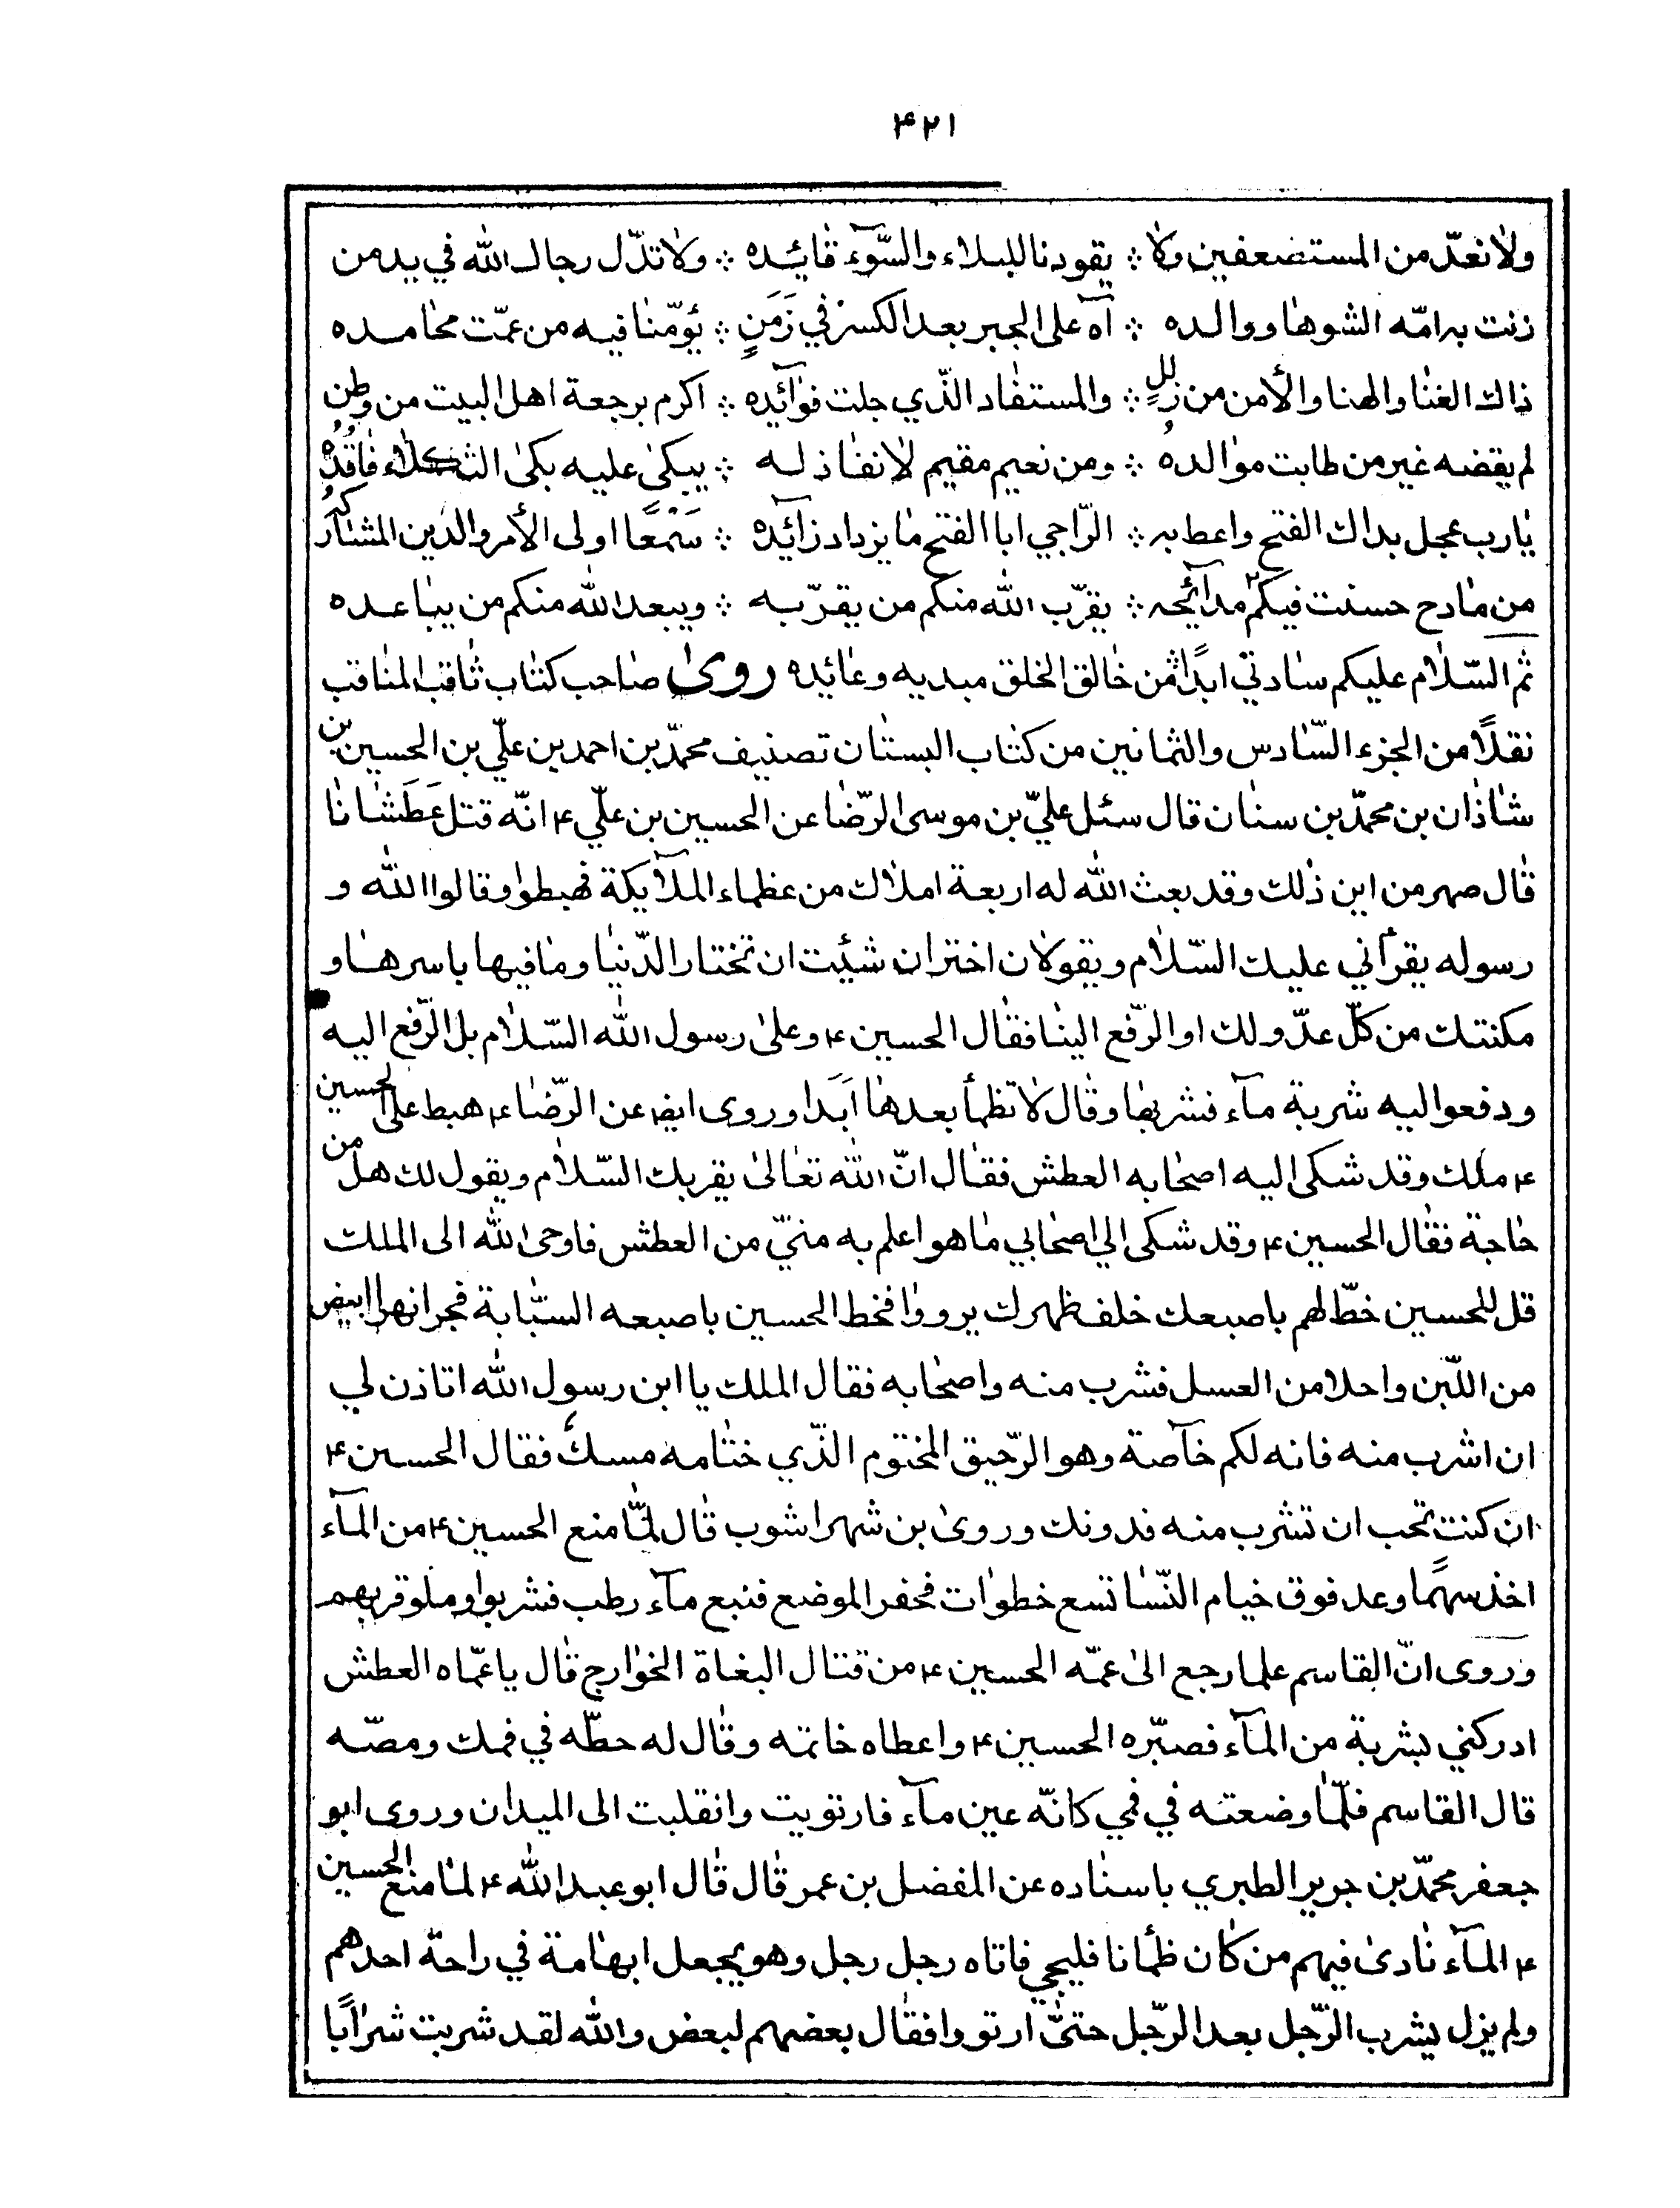 ۴۲۱
ولا نعدّ من المستضعفين ولا ∴ يقودنا للبلاء والسّوء قائده ∴ ولا تذّل رجال الله في يد من
زنت به امّه الشوها ووالده ∴ آه على الجبر بعد الكسر في زَمَنٍ ∴ يؤمّنا فيه من عمّت محامده
ذاك الغنا والهنا والأمن من زللٍ ∴ والمستفاد الّذي جلت فوآئده ∴ اكرم برجعة اهل البيت من وطن
لم يقضه غير من طابت موالدهُ ∴ ومن نعيم مقيم لا نفاذ له ∴ يبكى عليه بكى الثكلاء فاقدُهُ
يارب عجل بذاك الفتح واعط به ∴ الرّاجي ابا الفتح ما يزداد زائده ∴ سَمْعًا اولى الأمر والدين المشاركُ
من مادح حسنت فيكم مدآئحه ∴ يقرّب الله منكم من يقرّبه ∴ ويبعد الله منكم من يباعده
ثم السّلام عليكم سادتي ابدًا من خالق الخلق مبديه وعائده روى صاحب كتاب ثاقب المناقب
نقلًا من الجزء السّادس والثمانين من كتاب البستان تصنيف محمّد بن احمد بن علّي بن الحسين بن
شاذان بن محمّد بن سنان قال سئل عليّ بن موسى الرّضا عن الحسين بن علّي ۴ انّه قتل عَطَشانا
قال صهر من اين ذلك وقد بعث الله له اربعة املاك من عظماء الملآيكة فهبطوا وقالوا الله و
رسوله يقرأني عليك السّلام ويقولان اختر ان شئت ان تختار الدّنيا وما فيها باسرها و
مكنتك من كلّ عدّو لك او الرّفع الينا فقال الحسين ۴ وعلى رسول الله السّلام بل الرّفع اليه
ودفعوا اليه شربة مآء فشربها وقال لا تظمأ بعدها اَبَدا وروى ايض عن الرّضا ۴ هبط على الحسين
۴ ملك وقد شكى اليه اصحابه العطش فقال انّ الله تعالى يقريك السّلام ويقول لك هل من
حاجة فقال الحسين ۴ وقد شكى الي اصحابي ما هو اعلم به منيّ من العطش فاوحى الله الى الملك
قل للحسين خطّ لهم باصبعك خلف ظهرك يرووا فخط الحسين باصبعه السّبّابة فجر انهرا ابيض
من اللّبن واحلا من العسل فشرب منه واصحابه فقال الملك يا ابن رسول الله اتاذن لي
ان اشرب منه فانه لكم خآصة وهو الرّحيق المختوم الذّي ختامه مسكٌ فقال الحسين ۴
ان كنت تحب ان تشرب منه فدونك وروى بن شهراشوب قال لمّا منع الحسين ۴ من المآء
اخذ سهمًا وعد فوق خيام النّسا تسع خطوات فحفر الموضع فنبع مآء رطب فشربوا وملوا قربهم
وروى انّ القاسم علما رجع الى عمّه الحسين ۴ من قتال البغاة الخوارج قال يا عمّاه العطش
ادركني بشربة من المآء فصبّره الحسين ۴ واعطاه خاتمه وقال له حطّه في فمك ومصّه
قال القاسم فلمّا وضعته في فمي كانّه عين مآء فارتويت وانقلبت الى الميدان وروى ابو
جعفر محمّد بن جرير الطبري باسناده عن المفضل بن عمر قال قال ابو عبد الله ۴ لما منع الحسين
۴ المآء نادى فيهم من كان ظمأنا فليجي فاتاه رجل رجل وهو يجعل ابهامة في راحة احدهم
ولم يزل يشرب الرّجل بعد الرّجل حتىّ ارتووا فقال بعضهم لبعض والله لقد شربت شرابًا